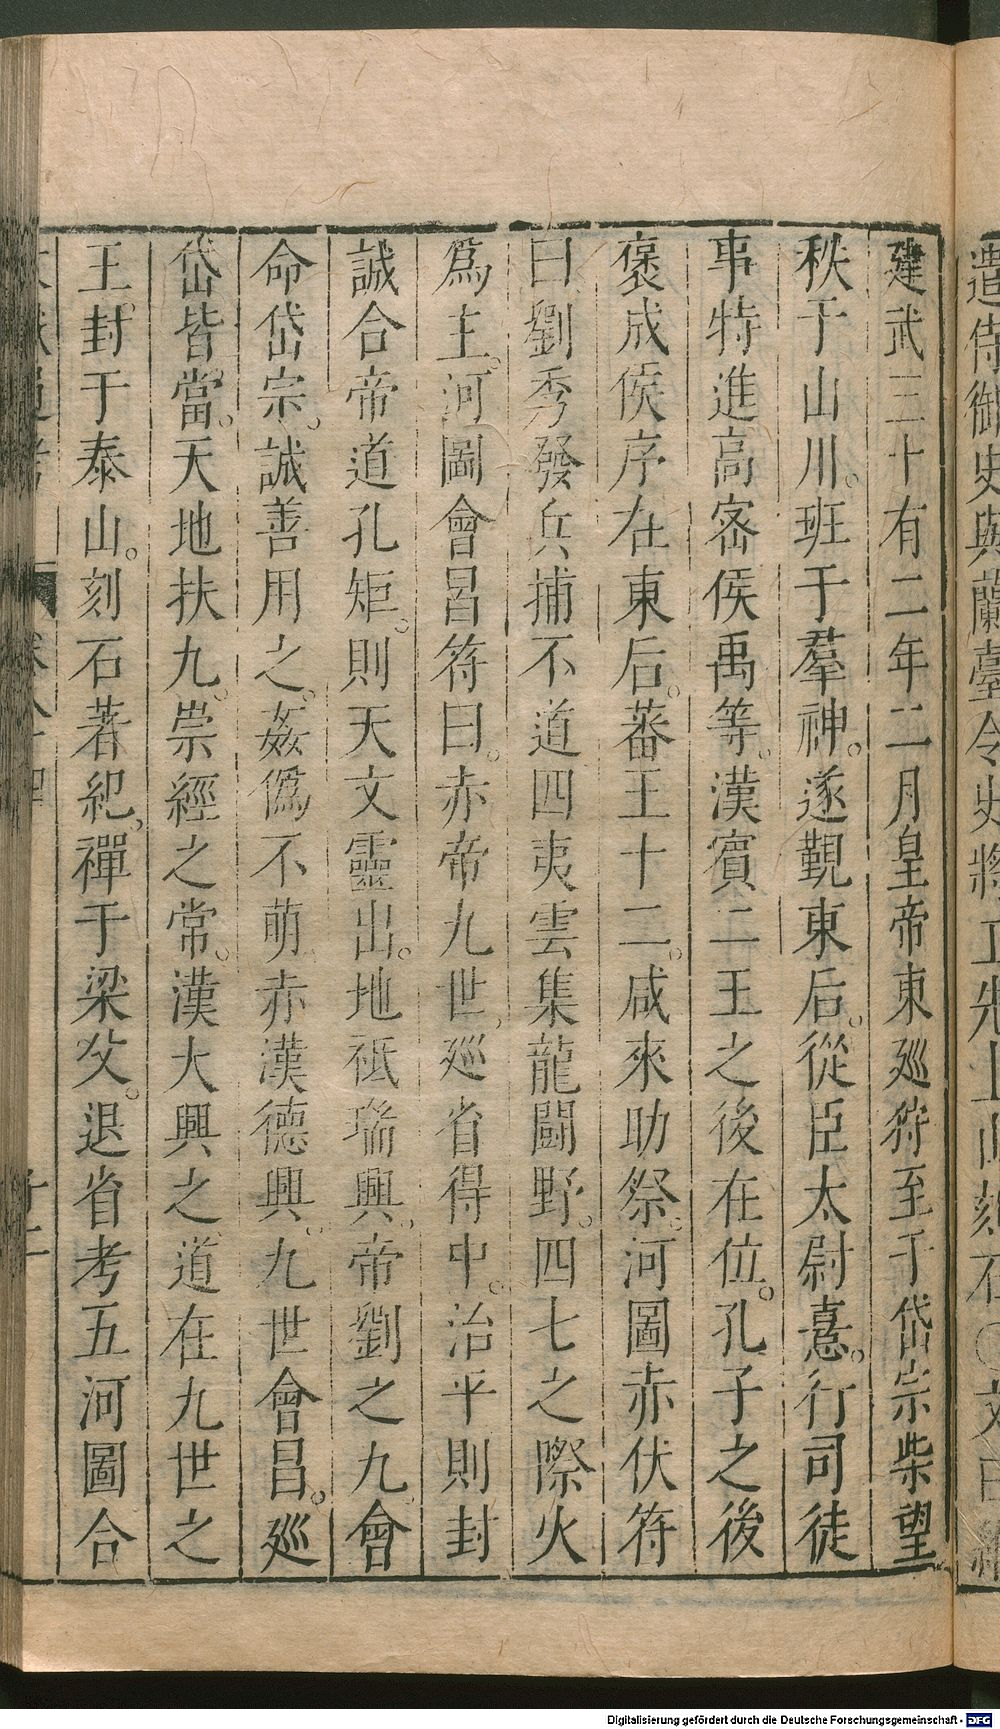 遣侍御史與蘭臺令史將工先上山刻石〇文曰維
建武三十有二年二月皇帝東廵狩至于岱宗柴望
秩于山川。班于羣神。遂覲東后。從臣太尉憙。行司徒
事特進高宻侯禹等。漢賔二王之後在位。孔子之後
褒成侯序在東后。蕃王十二。咸來助祭。河圖赤伏符
曰劉秀發兵捕不道四夷雲集龍鬬野。四七之際火
爲主。河圖會昌符曰。赤帝九世。廵省得中。治平則封
誠合帝道孔矩。則天文靈出。地祇瑞興。帝劉之九。會
命岱宗。誠善用之。姦僞不萌赤漢德興。九世會昌。廵
岱皆當。天地扶九。崇經之常。漢大興之道在九世之
王。封于泰山。刻石著紀。禪于梁父。退省考五河圖合
Digitalisierung gefördert durch die Deutsche Forschungsgemeinschaft - DFG